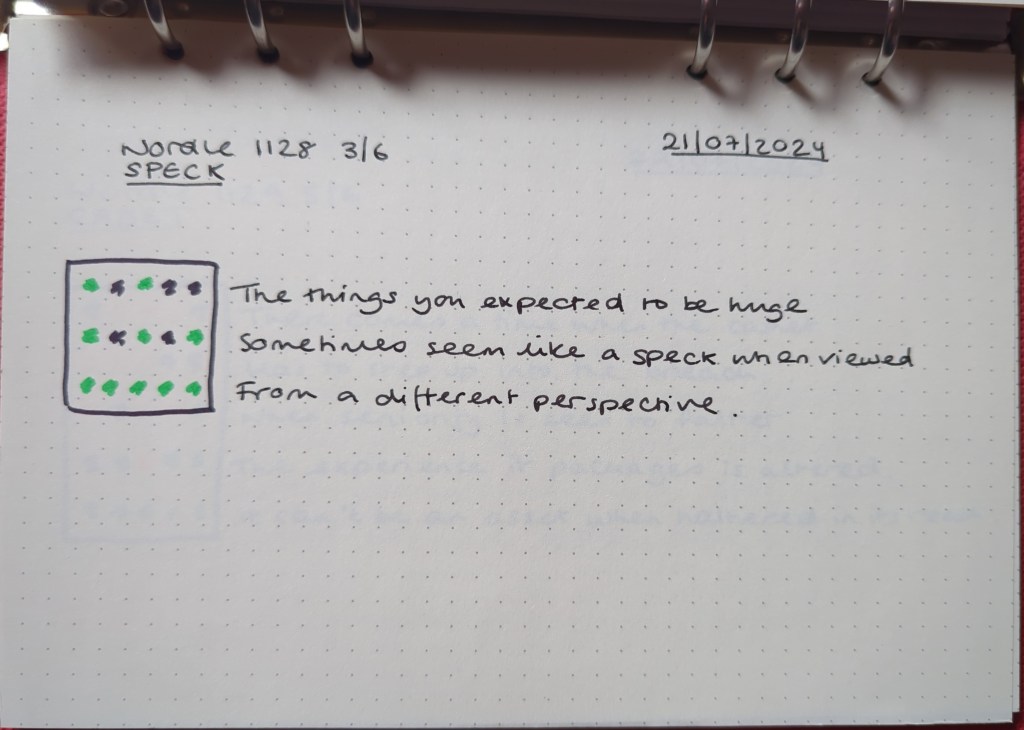 Wordle 1128 3/6
21/07/2024
SPECK
The things you expected to be huge
sometimes seem like a speck when viewed
from a different perspective.